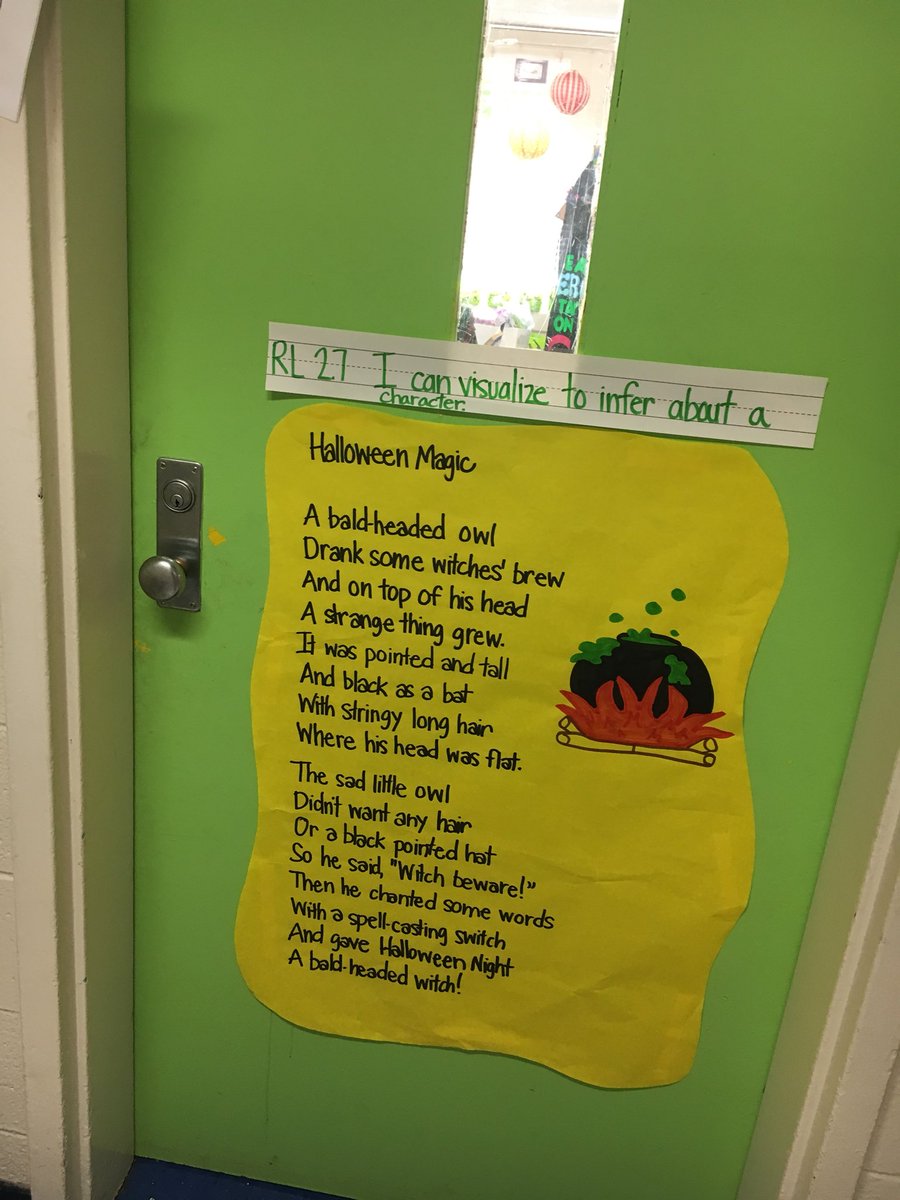 RL 2.7 I can visualize to infer about a
character.
Halloween Magic
A bald-headed owl
Drank some witches' brew
And on top of his head
A strange thing grew.
It was pointed and tall
And black as a bat
With stringy long hair
Where his head was flat.
The sad little owl
Didn't want any hair
Or a black pointed hat
So he said, "Witch beware!"
Then he chanted some words
With a spell-casting switch
And gave Halloween Night
A bald-headed witch!